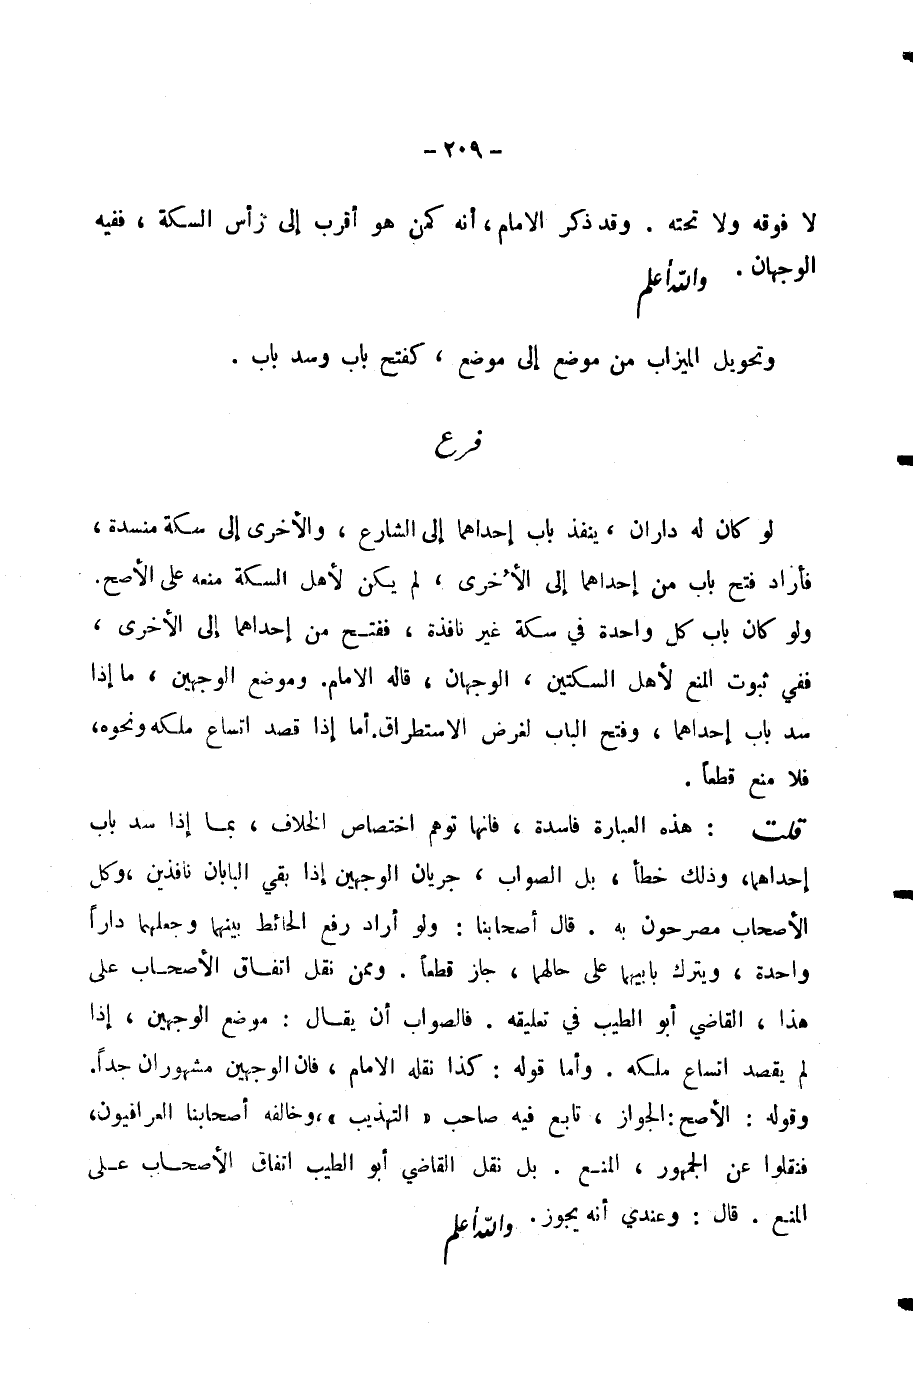 - ٢٠٩ -
لا فوقه ولا تحته . وقد ذكر الامام ، أنه كمن هو أقرب إلى رأس السكة ، ففيه
الوجهان . والله أعلم
وتحويل الميزاب من موضع إلى موضع ، كفتح باب وسد باب .
فرع
لو كان له داران ، ينفذ باب إحداهما إلى الشارع ، والأخرى إلى سكة منسدة ،
فأراد فتح باب من إحداهما إلى الأخرى ، لم يكن لأهل السكة منعه على الأصح.
ولو كان باب كل واحدة في سكة غير نافذة ، ففتح من إحداهما إلى الأخرى ،
ففي ثبوت المنع لأهل السكتين ، الوجهان ، قاله الامام. وموضع الوجهين ، ما إذا
سد باب إحداهما ، وفتح الباب لغرض الاستطراق. أما إذا قصد اتساع ملكه ونحوه،
فلا منع قطعاً .
قلت : هذه العبارة فاسدة ، فانها توهم اختصاص الخلاف ، بما إذا سد باب
إحداهما، وذلك خطأ ، بل الصواب ، جريان الوجهين إذا بقي البابان نافذين ،وكل
الأصحاب مصرحون به . قال أصحابنا : ولو أراد رفع الحائط بينهما وجعلهما داراً
واحدة ، ويترك بابيهما على حالهما ، جاز قطعاً . وممن نقل اتفاق الأصحاب على
هذا ، القاضي أبو الطيب في تعليقه . فالصواب أن يقال : موضع الوجهين ، إذا
لم يقصد اتساع ملكه . وأما قوله : كذا نقله الامام ، فان الوجهين مشهوران جداً.
وقوله : الأصح:الجواز ، تابع فيه صاحب « التهذيب »،وخالفه أصحابنا العراقيون،
فنقلوا عن الجمهور ، المنع . بل نقل القاضي أبو الطيب اتفاق الأصحاب على
المنع . قال : وعندي أنه يجوز. والله أعلم